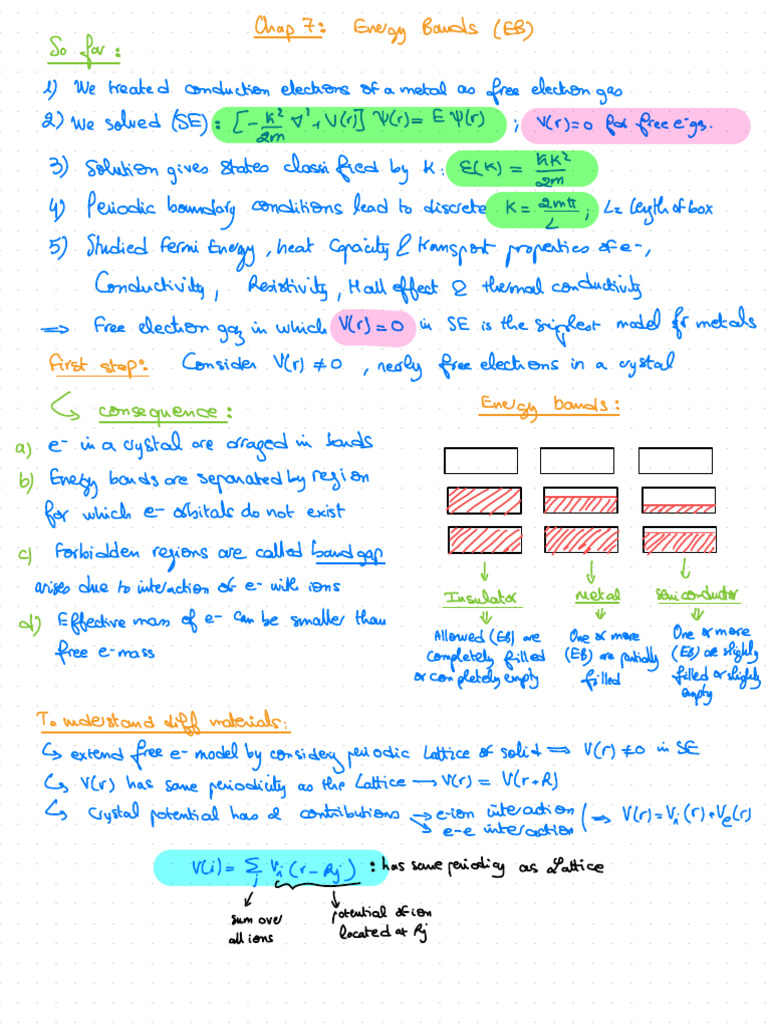 Chap 7: Energy Bands (EB)
So far:
1) We treated conduction electrons of a metal as free electron gas
2) We solved (SE): [-ℏ²/2m ∇² + V(r)] Ψ(r) = E Ψ(r) ; V(r)=0 for free e- gas.
3) Solution gives states classified by K: E(K) = ℏK²/2m
4) Periodic boundary conditions lead to discrete K = 2mπ/L ; L= length of box
5) Studied Fermi Energy, heat Capacity & transport properties of e-,
Conductivity, Resistivity, Hall effect & thermal conductivity
⇒ Free electron gaz in which V(r)=0 in SE is the simplest model for metals
First step: Consider V(r) ≠ 0, nearly free electrons in a crystal
↳ consequence:
a) e- in a crystal are arraged in bands
b) Energy bands are separated by region
for which e- orbitals do not exist
c) Forbidden regions are called band gap
arises due to interaction of e- with ions
d) Effective mass of e- can be smaller than
free e- mass
Energy bands:
Insulator
Allowed (EB) are
completely filled
or completely empty
Metal
One or more
(EB) are partially
filled
Semiconductor
One or more
(EB) are slighly
filled or slighly
empty
To understand diff materials:
↳ extend free e- model by considery periodic Lattice of solid ⇒ V(r) ≠ 0 in SE
↳ V(r) has same periodicity as the Lattice → V(r) = V(r+R)
↳ Crystal potential has 2 contributions → e-ion interaction
→ e-e interaction
⇒ V(r)=Vi(r)+Ve(r)
V(i) = Σj Vi(r-Rj) : has same periodicy as Lattice
sum over
all ions
potential of ion
located at Rj